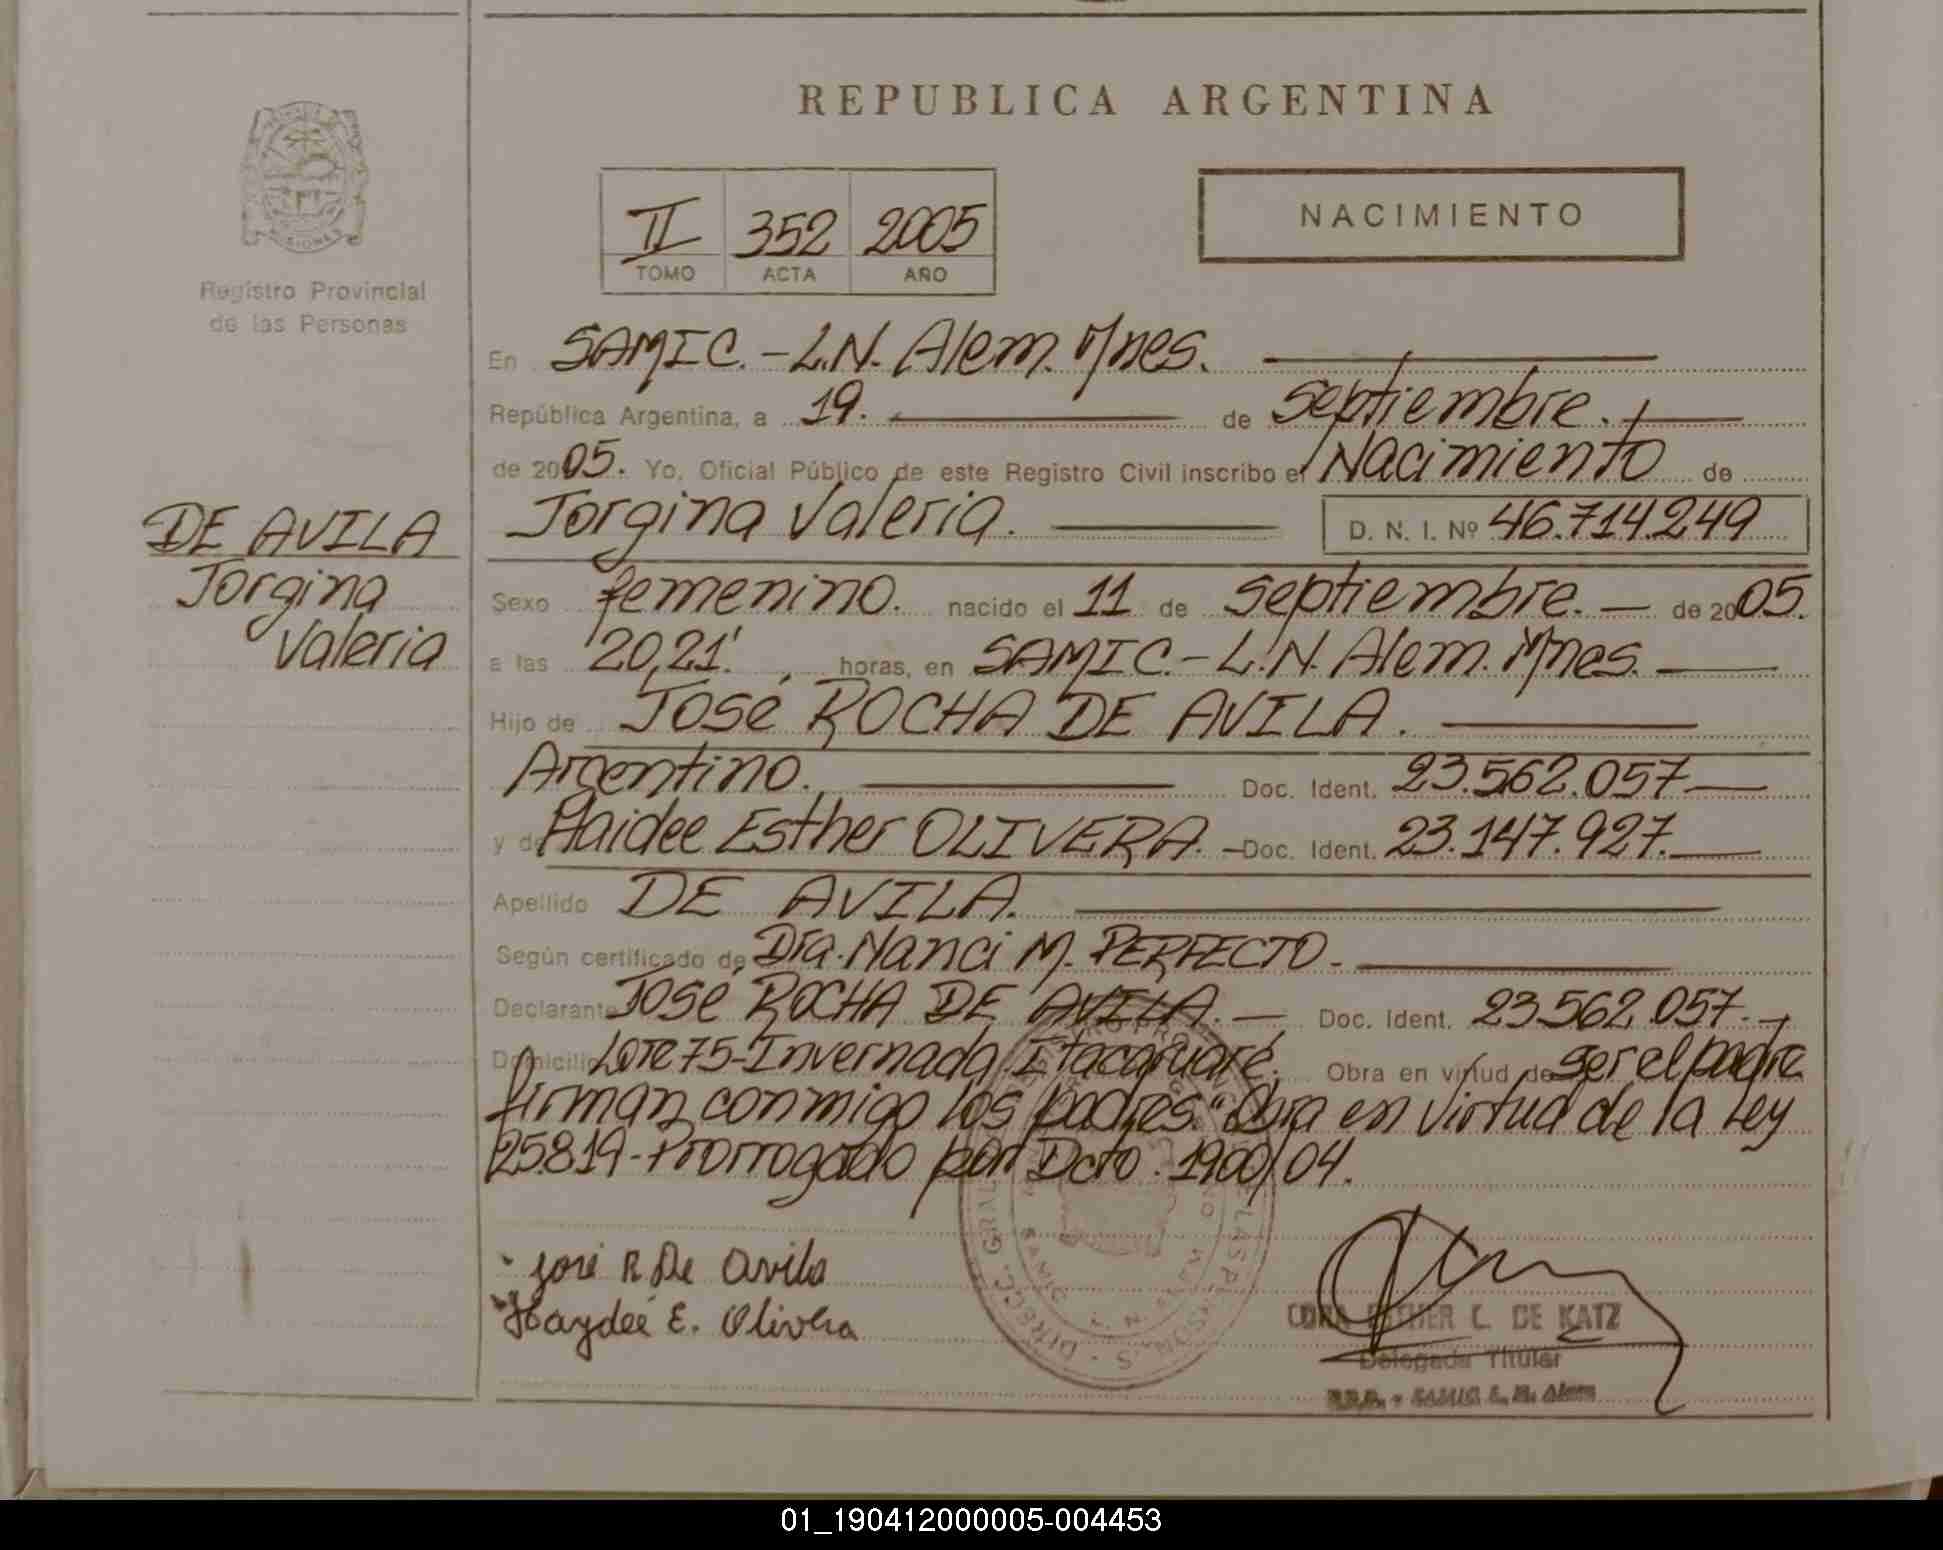 REPUBLICA ARGENTINA
II 352 2005
TOMO ACTA AÑO
NACIMIENTO
MISIONES
Registro Provincial
de las Personas
En SAMIC.-L.N. Alem. Mnes.
República Argentina, a 19. de septiembre.
de 2005. Yo, Oficial Público de este Registro Civil inscribo el Nacimiento de
Jorgina Valeria. D. N. I. Nº 46.714.249
DE AVILA
Jorgina
Valeria
Sexo femenino. nacido el 11 de septiembre. de 2005.
a las 20,21'. horas, en SAMIC.-L.N. Alem. Mnes.
Hijo de José ROCHA DE AVILA.
Argentino. Doc. Ident. 23.562.057
y de Haidee Esther OLIVERA. Doc. Ident. 23.147.927.
Apellido DE AVILA.
Según certificado de Dra. Nanci M. PERFECTO-
Declarante José ROCHA DE AVILA. Doc. Ident. 23562.057.
Domicilio Lote 75-Invernada Itacaruaré. Obra en virtud de ser el padre
firman conmigo los padres. "Obra en virtud de la Ley
25.819-Prorrogado por Dcto. 1900/04.
José R De Avila
Haydeé E. Olivera
CORA ESTHER L. DE KATZ
Delegada Titular
R.P.P. - SAMIC L. N. Alem
01_190412000005-004453